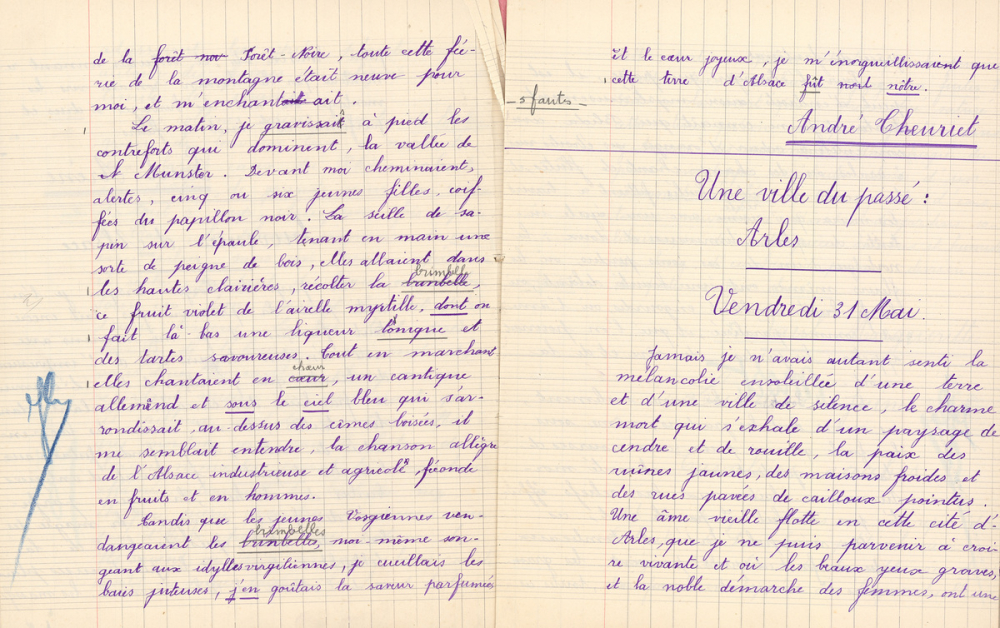 de la forêt noi Forêt-Noire, toute cette fée-
rie de la montagne était neuve pour
moi, et m'enchantait ait.
Le matin, je gravissait à pied les
contreforts qui dominent, la vallée de
Munster. Devant moi cheminaient,
alertes, cinq ou six jeunes filles, coif-
fées du papillon noir. La seille de sa-
pin sur l'épaule, tenant en main une
sorte de peigne de bois, elles allaient dans
brimbelle
les hautes clairiéres, récolter la brinbelle,
ce fruit violet de l'airelle myrtille, dont on
fait là-bas une liqueur tonique et
des tartes savoureuses. Tout en marchant
chœur
elles chantaient en cœur, un cantique
allemand et sous le ciel bleu qui s'ar-
rondissait au-dessus des cimes boisées, il
me semblait entendre, la chanson allègre
de l'Alsace industrieuse et agricole, féconde
en fruits et en hommes.
Tandis que les jeunes Vosgiennes ven-
brimbelles
dangeaient les brinbelles, moi-même son-
geant aux idylles virgiliennes, je cueillais les
baies juteuses, j'en goûtais la saveur parfumée
Et le cœur joyeux, je m'inorguillissaient que
cette terre d'Alsace fût nôtre.
5 fautes
André Theuriet
Une ville du passé :
Arles
Vendredi 31 Mai.
Jamais je n'avais autant senti la
mélancolie ensoleillée d'une terre
et d'une ville de silence, le charme
mort qui s'exhale d'un paysage de
cendre et de rouille, la paix des
ruines jaunes, des maisons froides et
des rues pavées de cailloux pointus.
Une âme vieille flotte en cette cité d'-
Arles, que je ne puis parvenir à croi-
re vivante et où les beaux yeux graves,
et la noble démarche des femmes, ont une